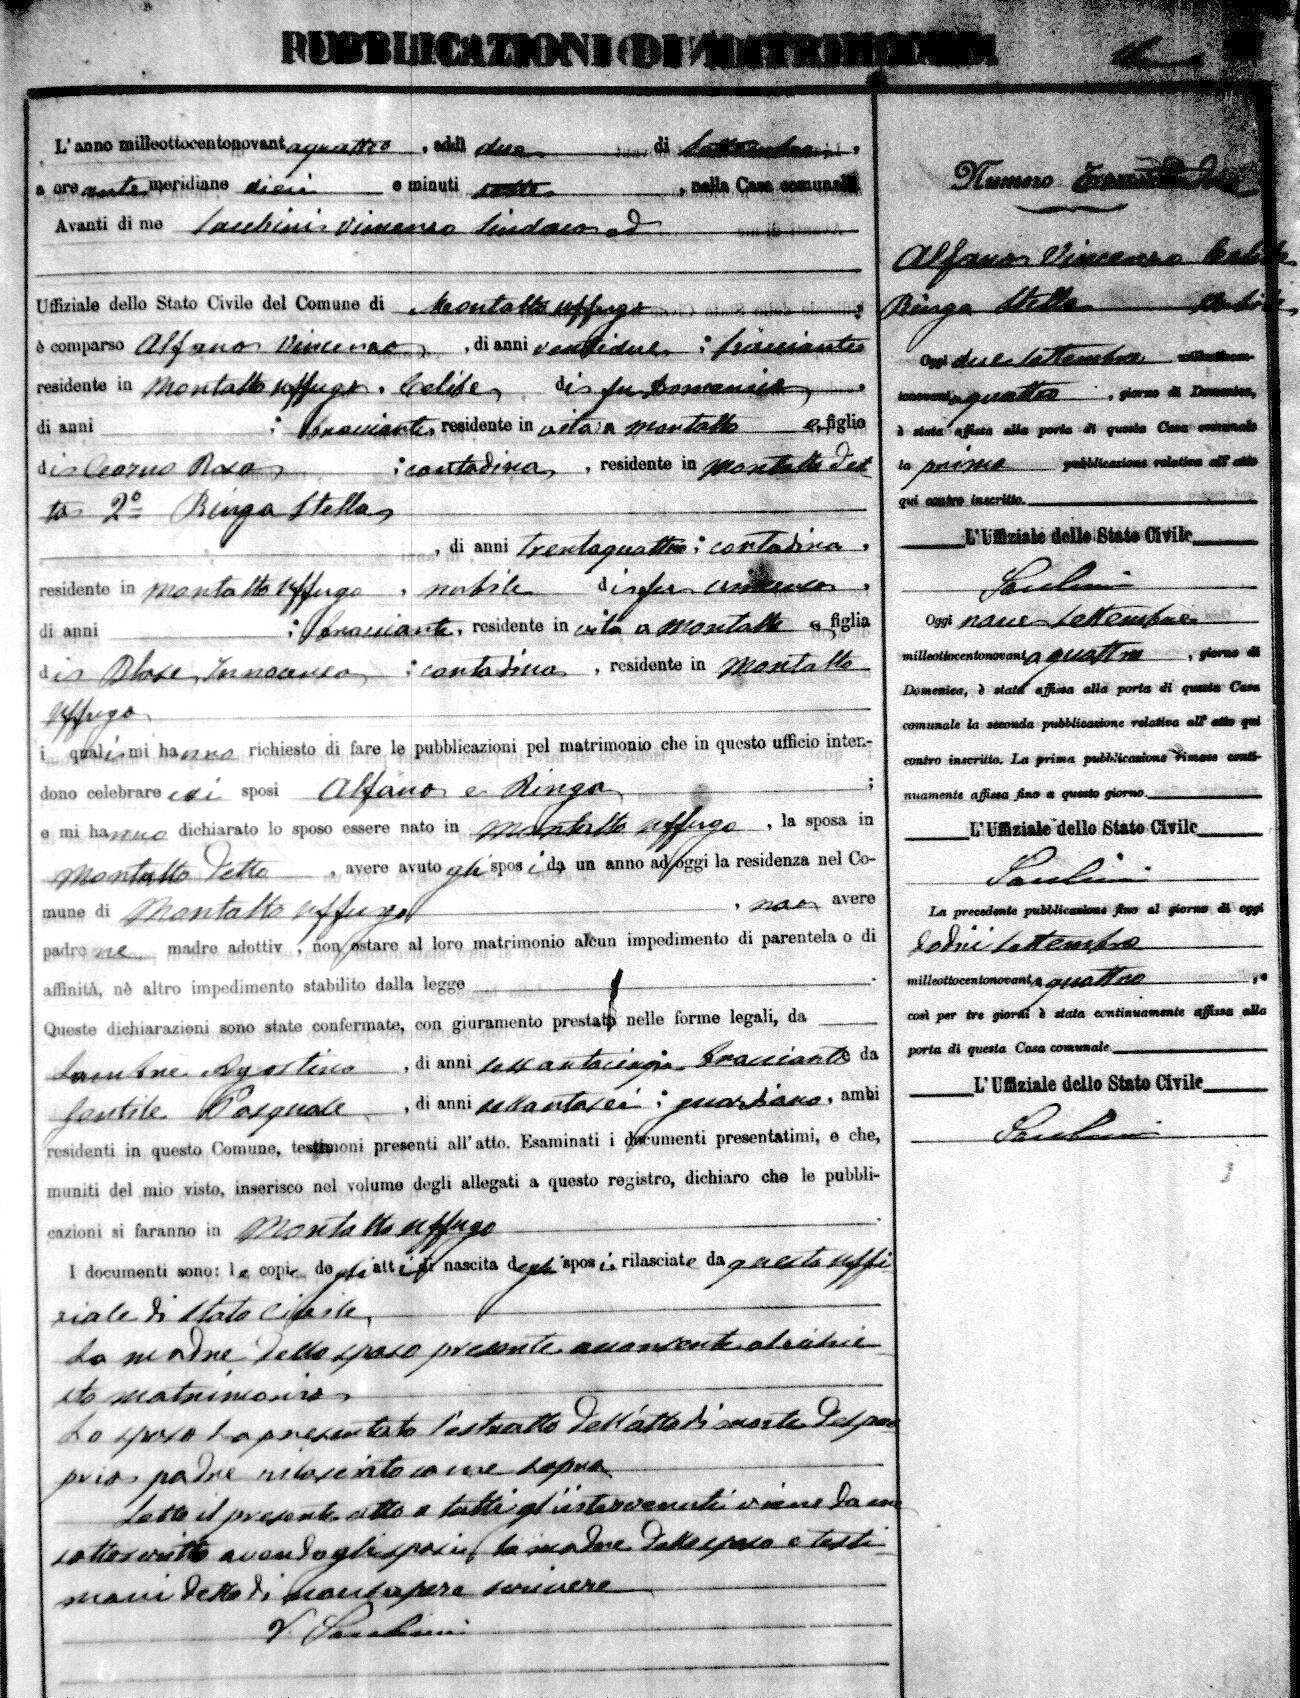 PUBBLICAZIONI DI MATRIMONIO
L'anno milleottocentonovantaquattro, addì due di Settembre,
a ore anti meridiane dieci e minuti sette, nella Casa comunale
Avanti di me Vincenzo Sindaco ed
Uffiziale dello Stato Civile del Comune di Montalto Uffugo
è comparso Alfano Vincenzo, di anni ventidue; bracciante
residente in Montalto Uffugo, Celibe, di fu Domenico,
di anni ; bracciante, residente in vita a Montalto e figlio
di Rosa ; contadina, residente in Montalto det-
to 2º Ringa Stella
, di anni trentaquattro; contadina,
residente in Montalto Uffugo, nubile di fu Vincenzo,
di anni ; bracciante, residente in vita a Montalto e figlia
di Blase Innocenza ; contadina, residente in Montalto
Uffugo
i quali mi hanno richiesto di fare le pubblicazioni pel matrimonio che in questo ufficio inten-
dono celebrare essi sposi Alfano e Ringa ;
e mi hanno dichiarato lo sposo essere nato in Montalto Uffugo, la sposa in
Montalto detto, avere avuto gli sposi da un anno ad oggi la residenza nel Co-
mune di Montalto Uffugo, non avere
padre ne madre adottiv , non ostare al loro matrimonio alcun impedimento di parentela o di
affinità, nè altro impedimento stabilito dalla legge
Queste dichiarazioni sono state confermate, con giuramento prestato nelle forme legali, da
Agostino, di anni sessantacinque bracciante e da
Gentile Pasquale, di anni sessantasei; guardiano, ambi
residenti in questo Comune, testimoni presenti all'atto. Esaminati i documenti presentatimi, e che,
muniti del mio visto, inserisco nel volume degli allegati a questo registro, dichiaro che le pubbli-
cazioni si faranno in Montalto Uffugo
I documenti sono: le copie degli atti di nascita degli sposi rilasciate da questo Uffi-
ziale di Stato Civile,
La madre dello sposo presente acconsente al richie
sto matrimonio
Lo sposo ha presentato l'estratto dell'atto di morte del pro
prio padre rilasciato come sopra
Letto il presente atto a tutti gl'intervenuti viene da me
sottoscritto avendo gli sposi, la madre dello sposo e testi-
moni detto di non sapere scrivere
Numero
Alfano Vincenzo Celibe
Ringa Stella nubile
Oggi due Settembre milleottocen-
tonovantaquattro, giorno di Domenica,
è stata affissa alla porta di questa Casa comunale
la prima pubblicazione relativa all'atto
qui contro inscritto.
L'Uffiziale dello Stato Civile
Oggi nove Settembre
milleottocentonovantaquattro, giorno di
Domenica, è stata affissa alla porta di questa Casa
comunale la seconda pubblicazione relativa all'atto qui
contro inscritto. La prima pubblicazione rimase conti-
nuamente affissa fino a questo giorno.
L'Uffiziale dello Stato Civile
La precedente pubblicazione fino al giorno di oggi
dodici Settembre
milleottocentonovantaquattro, e
così per tre giorni è stata continuamente affissa alla
porta di questa Casa comunale
L'Uffiziale dello Stato Civile